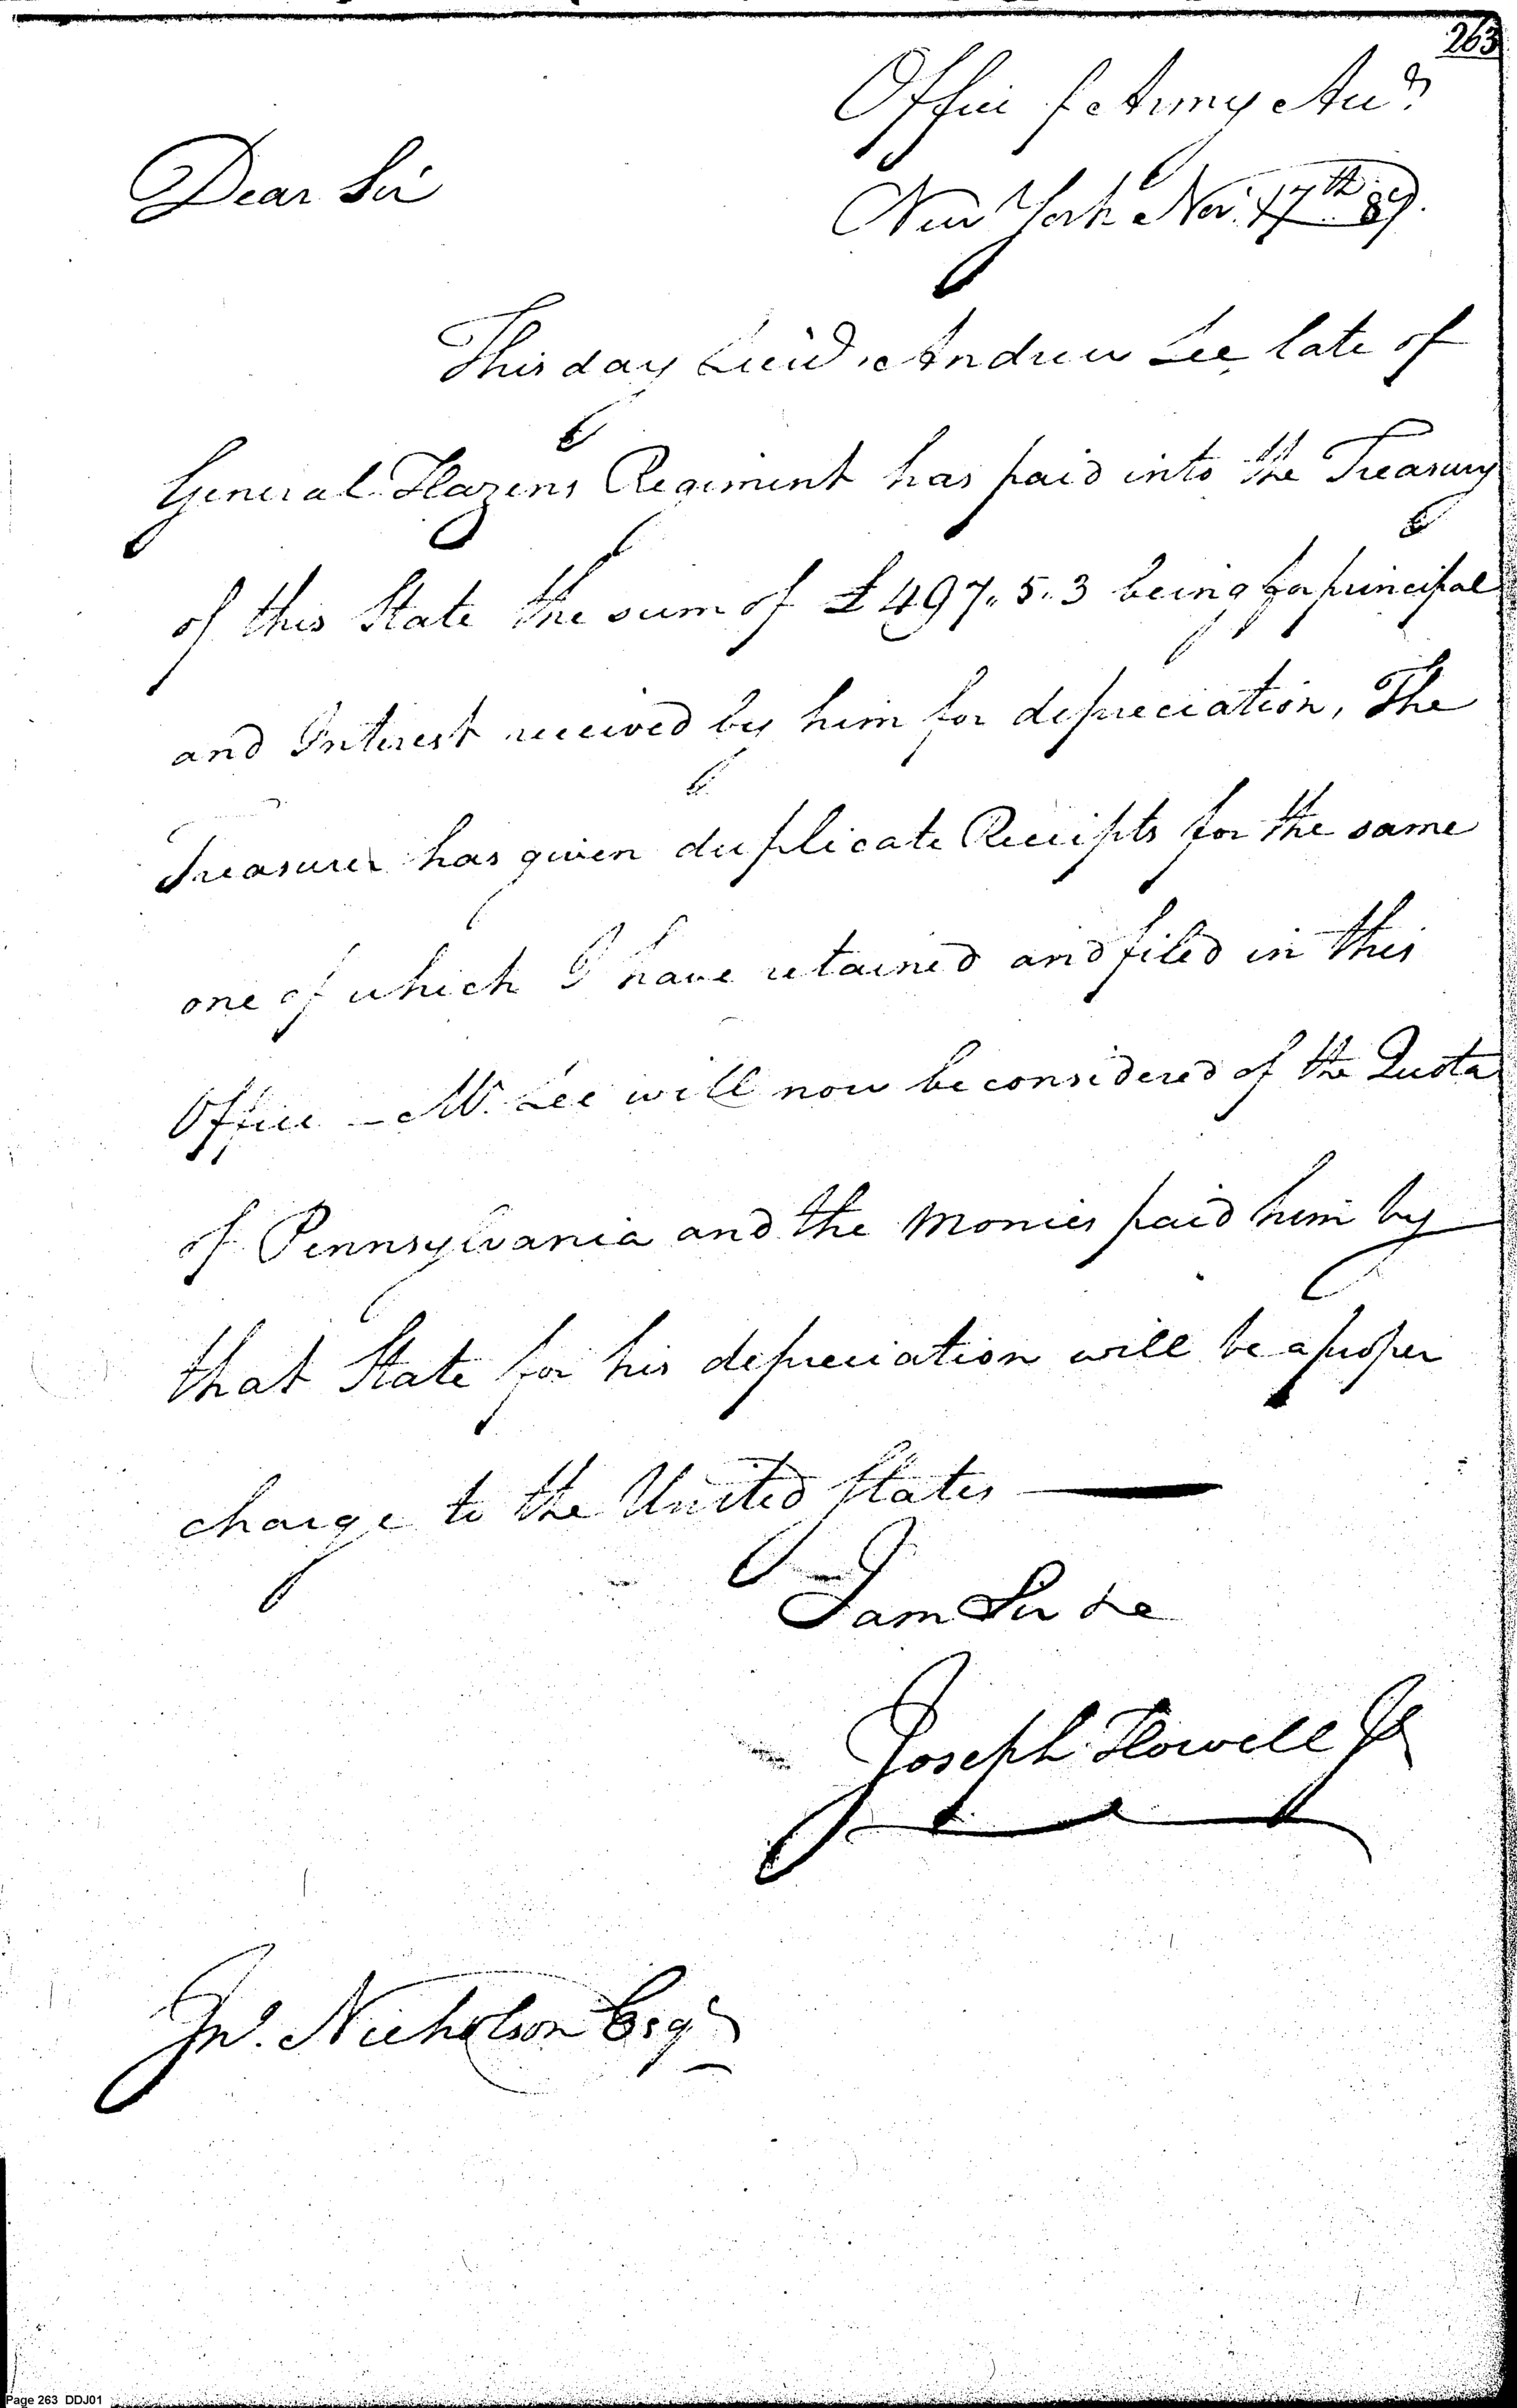 263
Office of Army Accts
Dear Sir
New York Nov. 17th 89.
This day Lieut. Andrew Lee late of
General Hazens Regiment has paid into the Treasury
of this State the sum of £497.5.3 being for principal
and Interest received by him for depreciation, The
Treasurer has given duplicate Receipts for the same
one of which I have retained and filed in this
Office — Mr. Lee will now be considered of the Quota
of Pennsylvania and the Monies paid him by
that State for his depreciation will be a proper
charge to the United States —
I am Sir &c
Joseph Howell Jr
Jno. Nicholson Esqr
Page 263 DDJ01